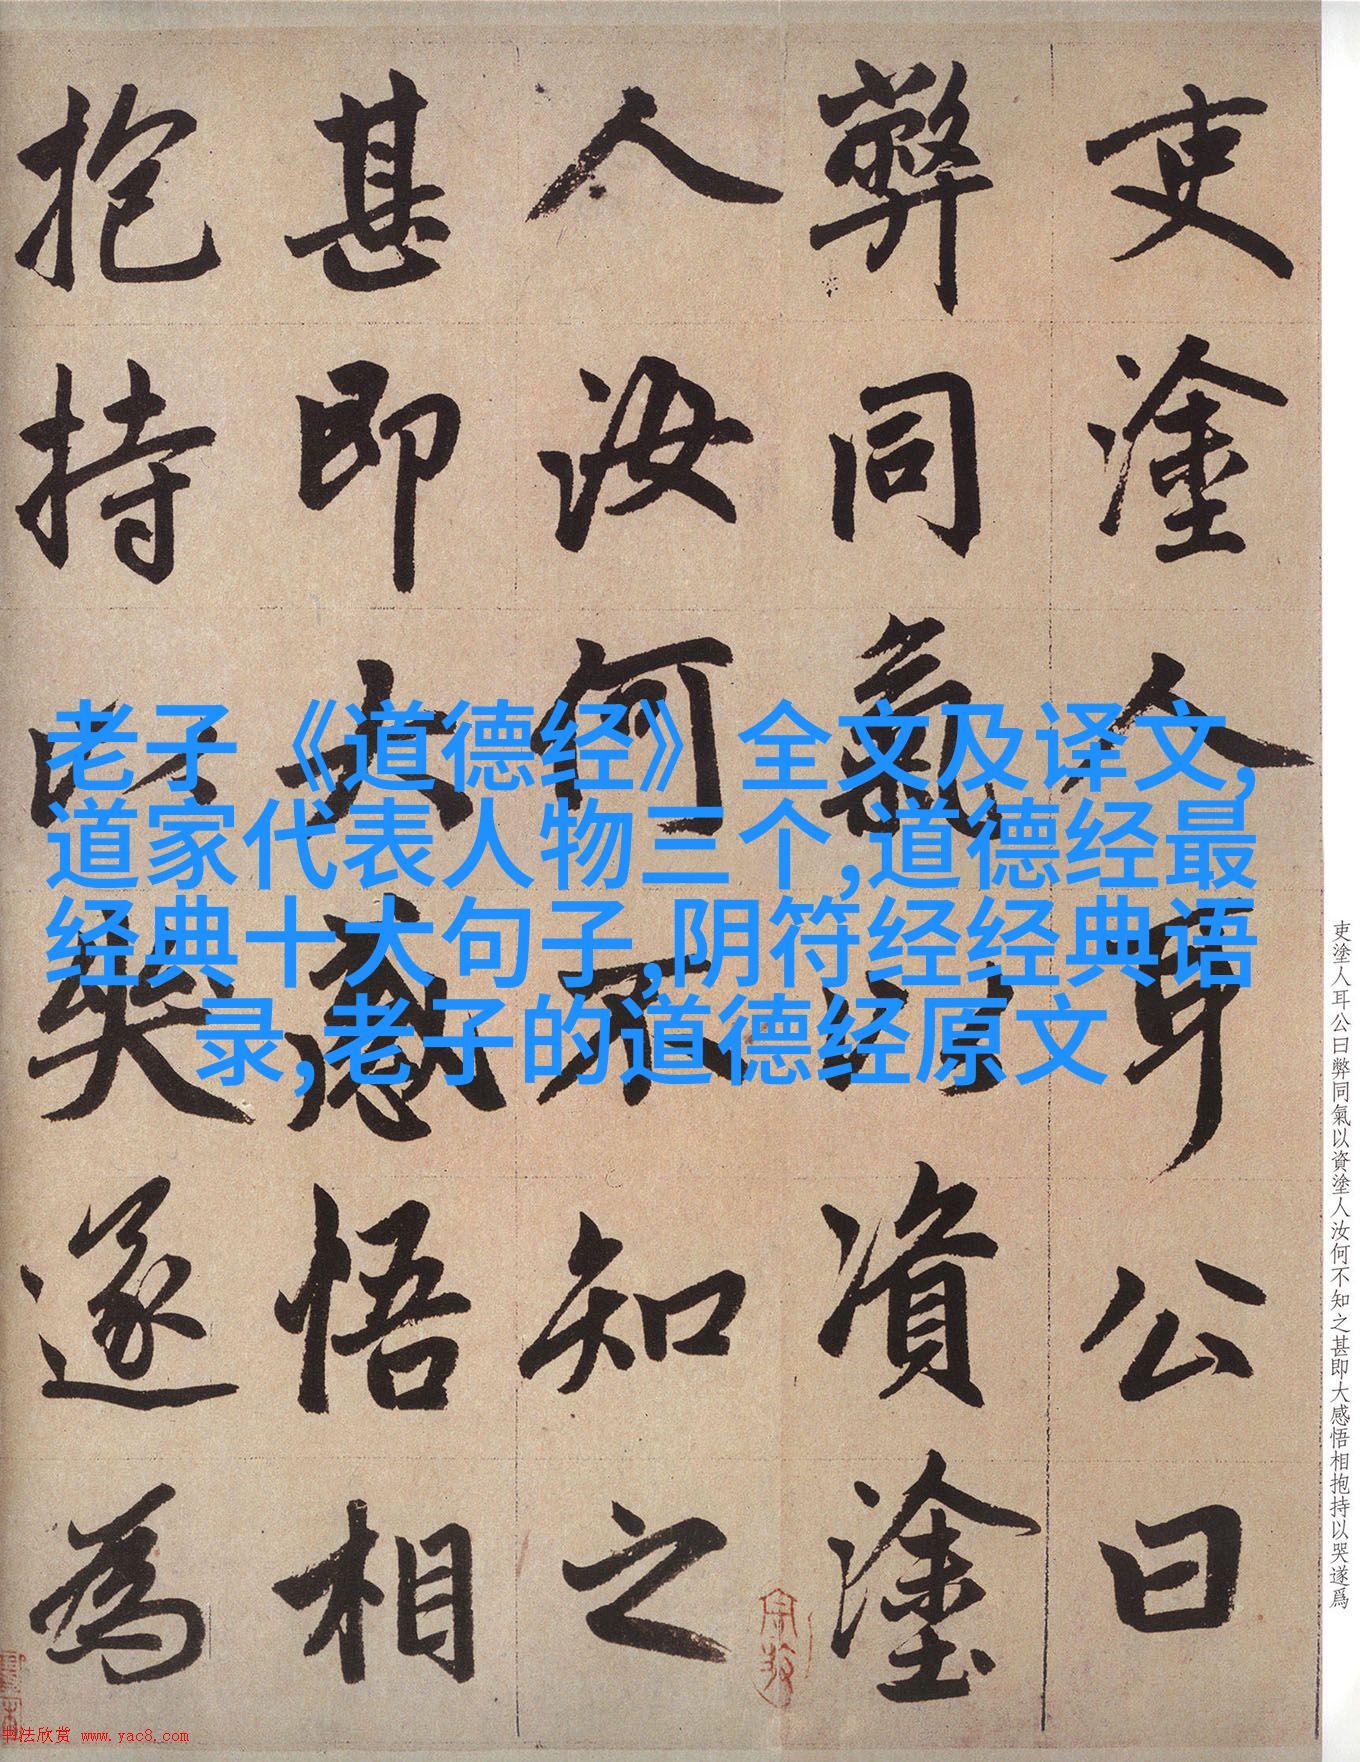 吏塗人耳公曰
弊同氣以資塗
人汝何不知之
甚即大感悟相
抱持以哭遂為
老子《道德经》全文及译文,
道家代表人物三个,道德经最
经典十大句子,阴符经经典语
录,老子的道德经原文
吏塗人耳公曰弊同氣以資塗人汝何不知之甚即大感悟相抱持以哭遂爲
书法欣赏 www.yac8.com